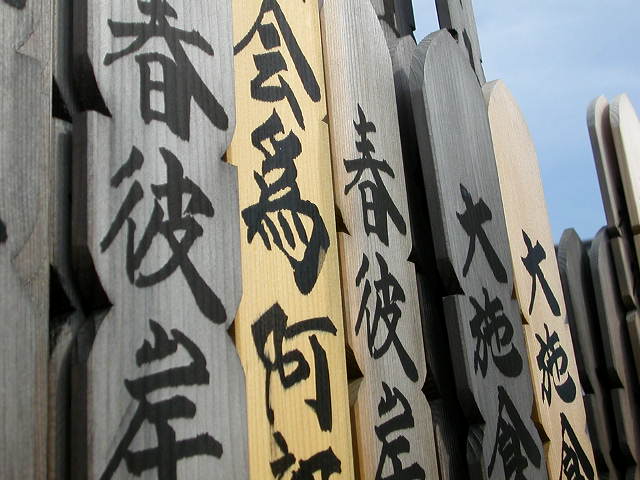 春彼岸
会為阿
春彼岸
大施食
大施食